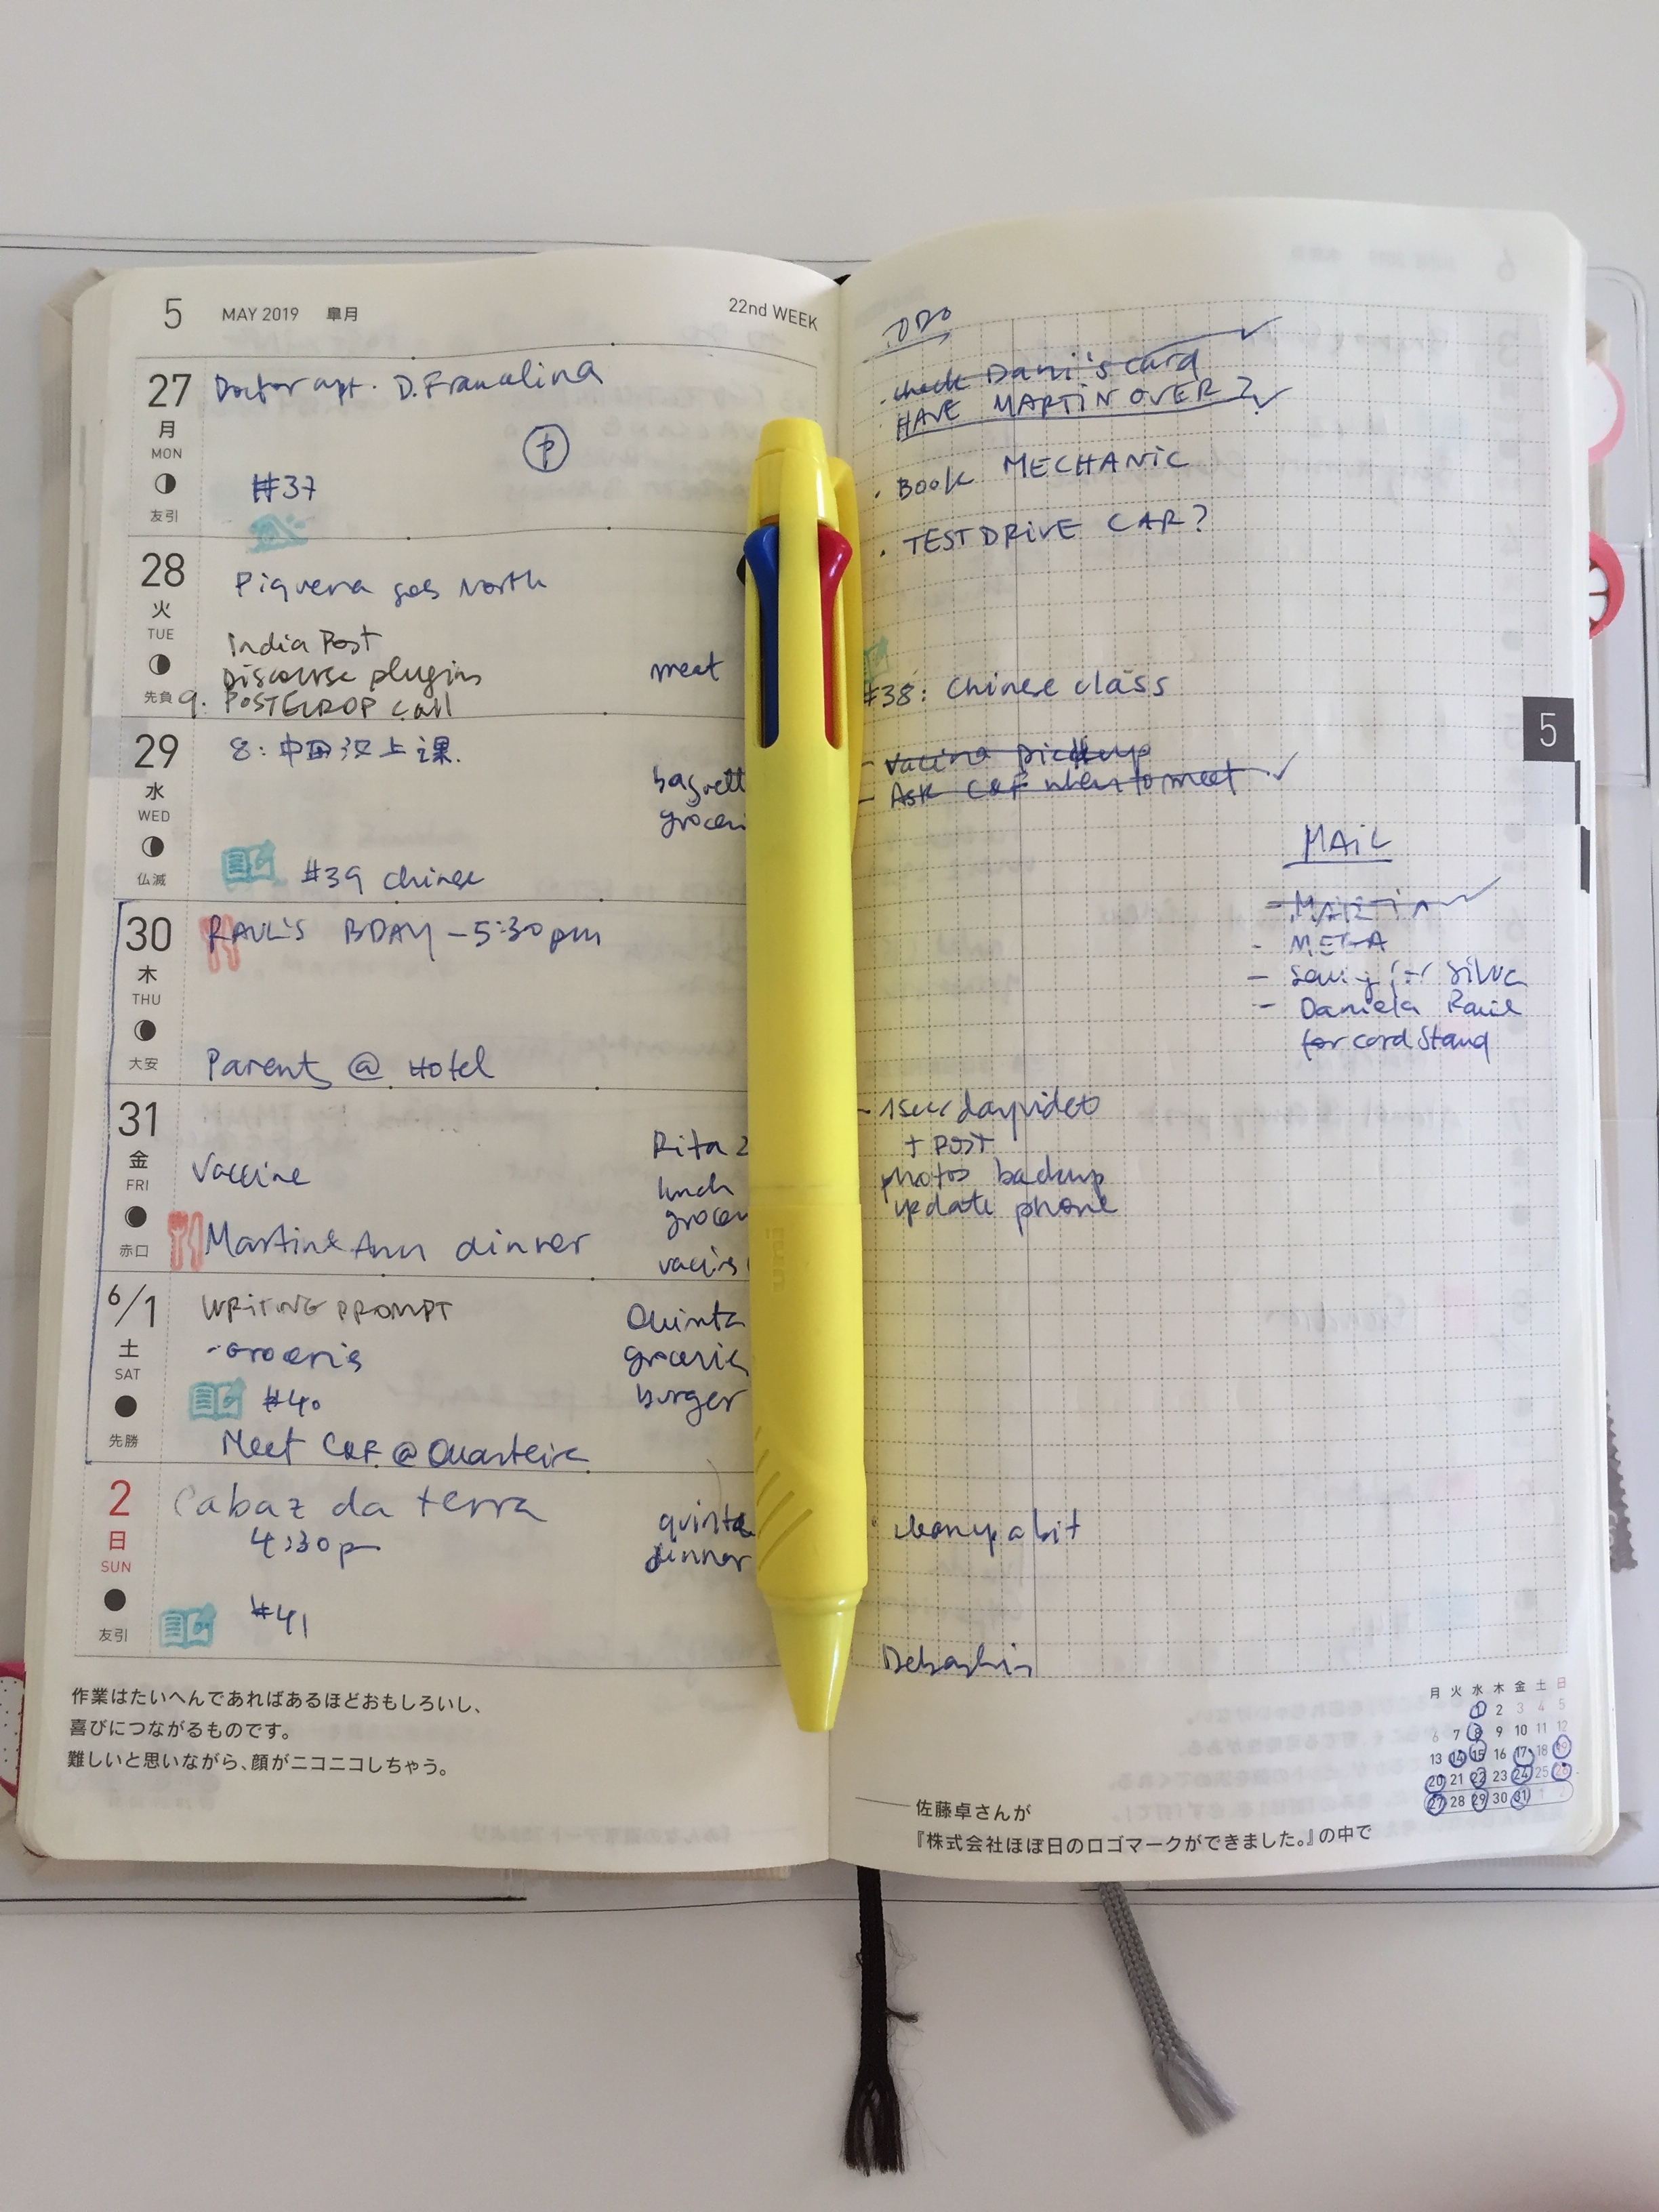 5 MAY 2019 皐月 22nd WEEK
27 Doctor apt. D.
月
MON
#37
友引
28
火
TUE
先負
goes North
India Post
Discourse plugins
9. POSTCROP call
meet
29
水
WED
仏滅
8:
上课.
#39 chinese
30
木
THU
大安
RAUL'S BDAY - 5:30 pm
Parents @ Hotel
31
金
FRI
赤口
Vaccine
Martin & Ann dinner
Rita
lunch
6/1
土
SAT
先勝
WRITING PROMPT
- Groceris
#40
Meet C&F @ Quarteira
Quinta
burger
2
日
SUN
友引
Cabaz da terra
4:30p
#41
quinta
dinner
作業はたいへんであればあるほどおもしろいし、
喜びにつながるものです。
難しいと思いながら、顔がニコニコしちゃう。
uni
TODO
. check Dani's card
HAVE MARTIN OVER?
. BOOK MECHANIC
. TEST DRIVE CAR?
#38: Chinese class
- vacina pickup
- Ask C&F when to meet
5
MAIL
- META
- Daniela
for card stand
- 1sec/day video
+ POST
photos backup
update phone
cleanup a bit
月 火 水 木 金 土 日
1 2 3 4 5
6 7 8 9 10 11 12
13 14 15 16 17 18 19
20 21 22 23 24 25 26
27 28 29 30 31 1 2
佐藤卓さんが
『株式会社ほぼ日のロゴマークができました。』の中で